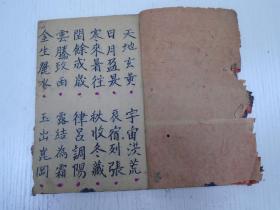 天地玄黄 宇宙洪荒
日月盈昃 辰宿列張
寒來暑往 秋收冬藏
閏餘成歲 律呂調陽
雲騰致雨 露結為霜
金生麗水 玉出崑岡